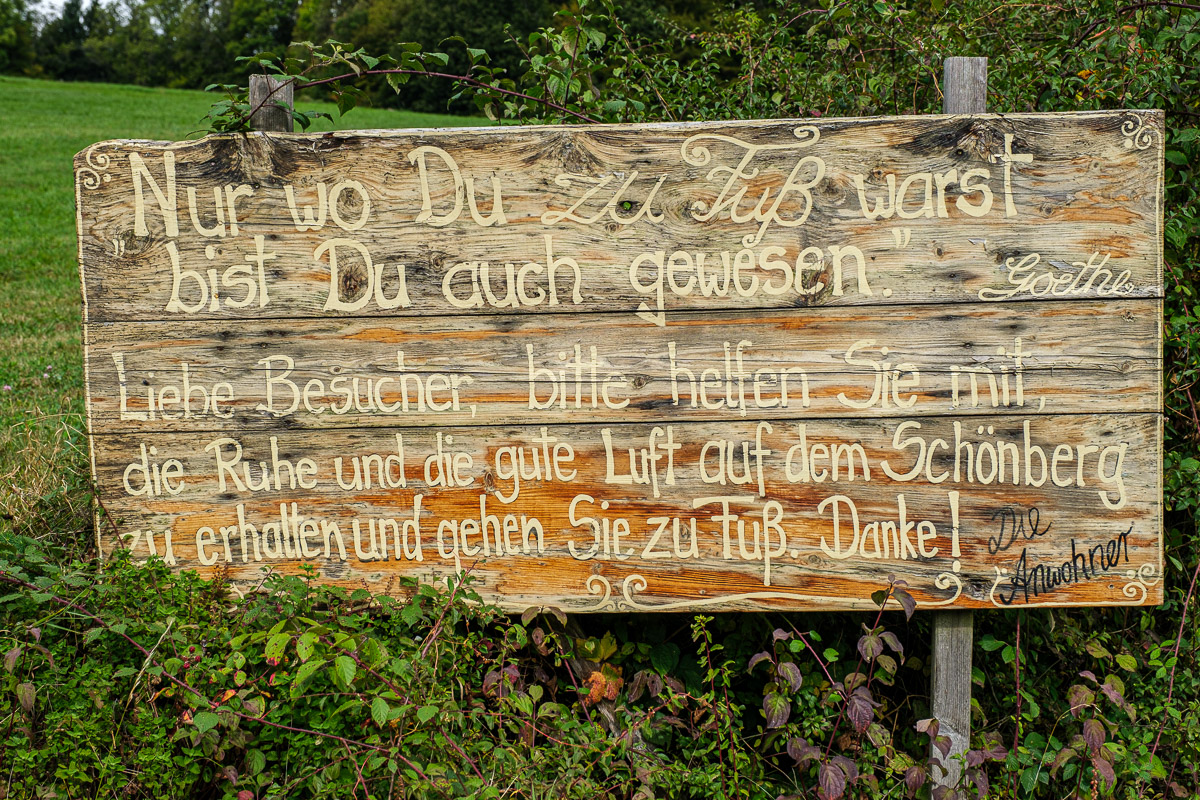 Nur wo Du zu Fuß warst
"bist Du auch gewesen."
Goethe
Liebe Besucher, bitte helfen Sie mit,
die Ruhe und die gute Luft auf dem Schönberg
zu erhalten und gehen Sie zu Fuß. Danke!
Die
Anwohner